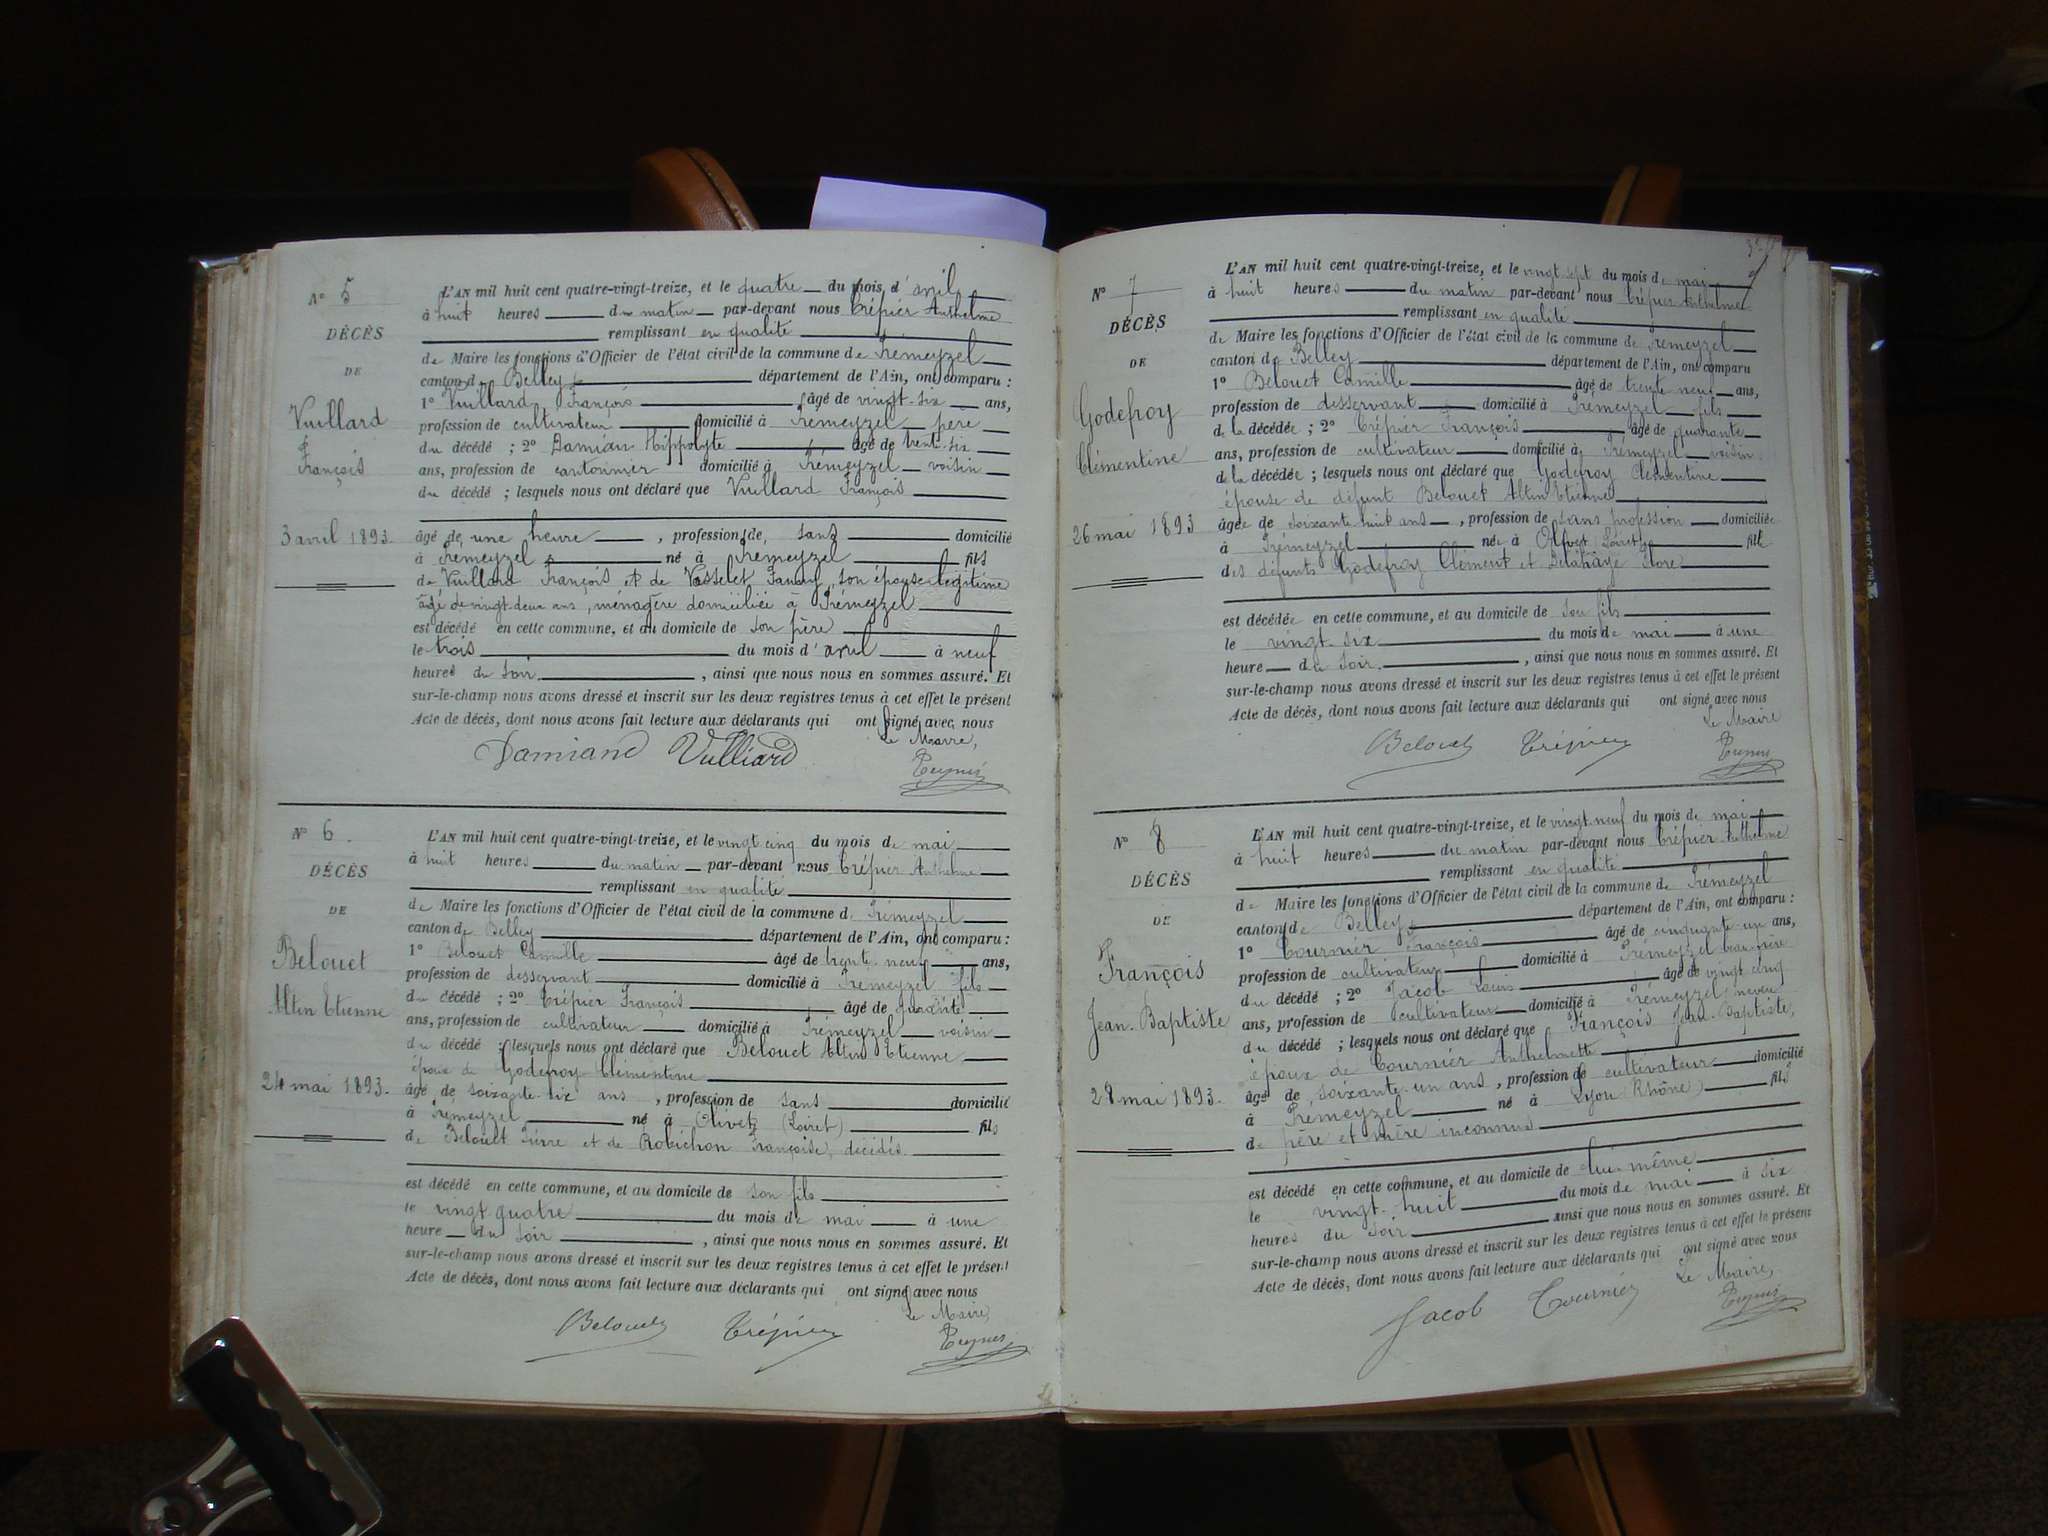 N° 5
DÉCÈS
DE
Vuillard
François
3 avril 1893.
L'AN mil huit cent quatre-vingt-treize, et le quatre du mois d'avril
à huit heures du matin par-devant nous Trépier Anthelme
remplissant en qualité
de Maire les fonctions d'Officier de l'état civil de la commune de Prémeyzel
canton de Belley département de l'Ain, ont comparu :
1° Vuillard François âgé de vingt-six ans,
profession de cultivateur domicilié à Prémeyzel père
du décédé ; 2° Damian Hippolyte âgé de trent-six
ans, profession de cantonnier domicilié à Prémeyzel voisin
du décédé ; lesquels nous ont déclaré que Vuillard François
âgé de une heure, profession de sans domicilié
à Prémeyzel né à Prémeyzel fils
de Vuillard François et de Vasselet Fanny, son épouse légitime
âgé de vingt-deux ans, ménagère domiciliée à Prémeyzel
est décédé en cette commune, et au domicile de son père
le trois du mois d'avril à neuf
heures du soir, ainsi que nous nous en sommes assuré. Et
sur-le-champ nous avons dressé et inscrit sur les deux registres tenus à cet effet le présent
Acte de décès, dont nous avons fait lecture aux déclarants qui ont signé avec nous
Le Maire,
Damiand Vulliard
N° 6.
DÉCÈS
DE
Belouet
Altin Etienne
24 mai 1893.
L'AN mil huit cent quatre-vingt-treize, et le vingt cinq du mois de mai
à huit heures du matin par-devant nous Trépier Anthelme
remplissant en qualité
de Maire les fonctions d'Officier de l'état civil de la commune d. Prémeyzel
canton de Belley département de l'Ain, ont comparu :
1° Belouet Camille âgé de trente-neuf ans,
profession de desservant domicilié à Prémeyzel fils
du décédé ; 2° Trépier François âgé de quarante
ans, profession de cultivateur domicilié à Prémeyzel voisin
du décédé ; lesquels nous ont déclaré que Belouet Altin Etienne
époux de Godefroy Clémentine
âgé de soixante-dix ans, profession de sans domicilié
à Prémeyzel né à Olivet (Loiret) fils
de Belouet Pierre et de Robichon Françoise, décédés
est décédé en cette commune, et au domicile de son fils
le vingt quatre du mois de mai à une
heure du soir, ainsi que nous nous en sommes assuré. Et
sur-le-champ nous avons dressé et inscrit sur les deux registres tenus à cet effet le présent
Acte de décès, dont nous avons fait lecture aux déclarants qui ont signé avec nous
Le Maire,
Belouet Trépier
N° 7
DÉCÈS
DE
Godefroy
Clémentine
26 mai 1893
L'AN mil huit cent quatre-vingt-treize, et le vingt-sept du mois de mai
à huit heures du matin par-devant nous Trépier Anthelme
remplissant en qualité
de Maire les fonctions d'Officier de l'état civil de la commune de Prémeyzel
canton de Belley département de l'Ain, ont comparu
1° Belouet Camille âgé de trente neuf ans,
profession de desservant domicilié à Prémeyzel fils
de la décédée ; 2° Trépier François âgé de quarante
ans, profession de cultivateur domicilié à Prémeyzel voisin
de la décédée ; lesquels nous ont déclaré que Godefroy Clémentine
épouse de défunt Belouet Altin Etienne
âgée de soixante huit ans, profession de sans profession domiciliée
à Prémeyzel née à Olivet Loiret fille
des défunts Godefroy Clément et Delahaye Flore
est décédée en cette commune, et au domicile de son fils
le vingt-six du mois de mai à une
heure du soir, ainsi que nous nous en sommes assuré. Et
sur-le-champ nous avons dressé et inscrit sur les deux registres tenus à cet effet le présent
Acte de décès, dont nous avons fait lecture aux déclarants qui ont signé avec nous
Le Maire
Belouet Trépier
N° 8
DÉCÈS
DE
François
Jean-Baptiste
28 mai 1893.
L'AN mil huit cent quatre-vingt-treize, et le vingt-neuf du mois de mai
à huit heures du matin par-devant nous Trépier Anthelme
remplissant en qualité
de Maire les fonctions d'Officier de l'état civil de la commune de Prémeyzel
canton de Belley département de l'Ain, ont comparu :
1° Tournier François âgé de cinquante-un ans,
profession de cultivateur domicilié à Prémeyzel beau-frère
du décédé ; 2° Jacob Louis âgé de vingt cinq
ans, profession de cultivateur domicilié à Prémeyzel neveu
du décédé ; lesquels nous ont déclaré que François Jean-Baptiste,
époux de Tournier Anthelmette
âgé de soixante-un ans, profession de cultivateur domicilié
à Prémeyzel né à Lyon (Rhône) fils
de père et mère inconnus
est décédé en cette commune, et au domicile de lui-même
le vingt-huit du mois de mai à six
heures du soir ainsi que nous nous en sommes assuré. Et
sur-le-champ nous avons dressé et inscrit sur les deux registres tenus à cet effet le présent
Acte de décès, dont nous avons fait lecture aux déclarants qui ont signé avec nous
Le Maire,
Jacob Tournier